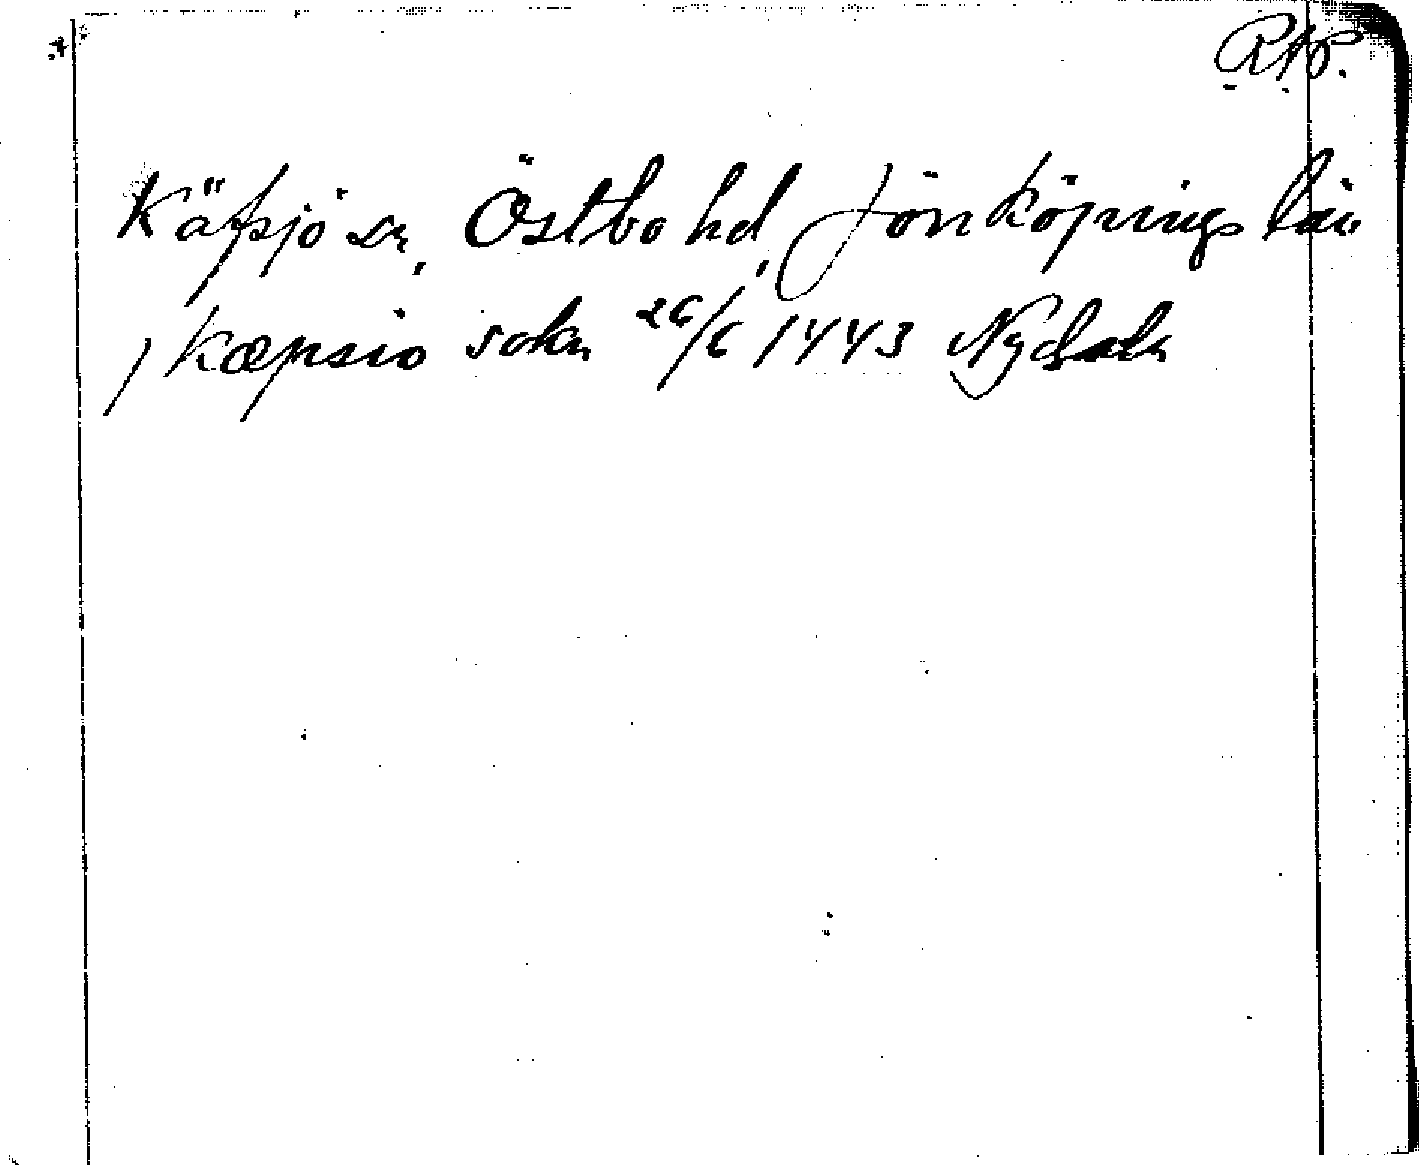 RAp.
Käfsjö sn, Östbo hd, Jönköpings län
j Kæpsio sokn 26/6 1443 Nydala